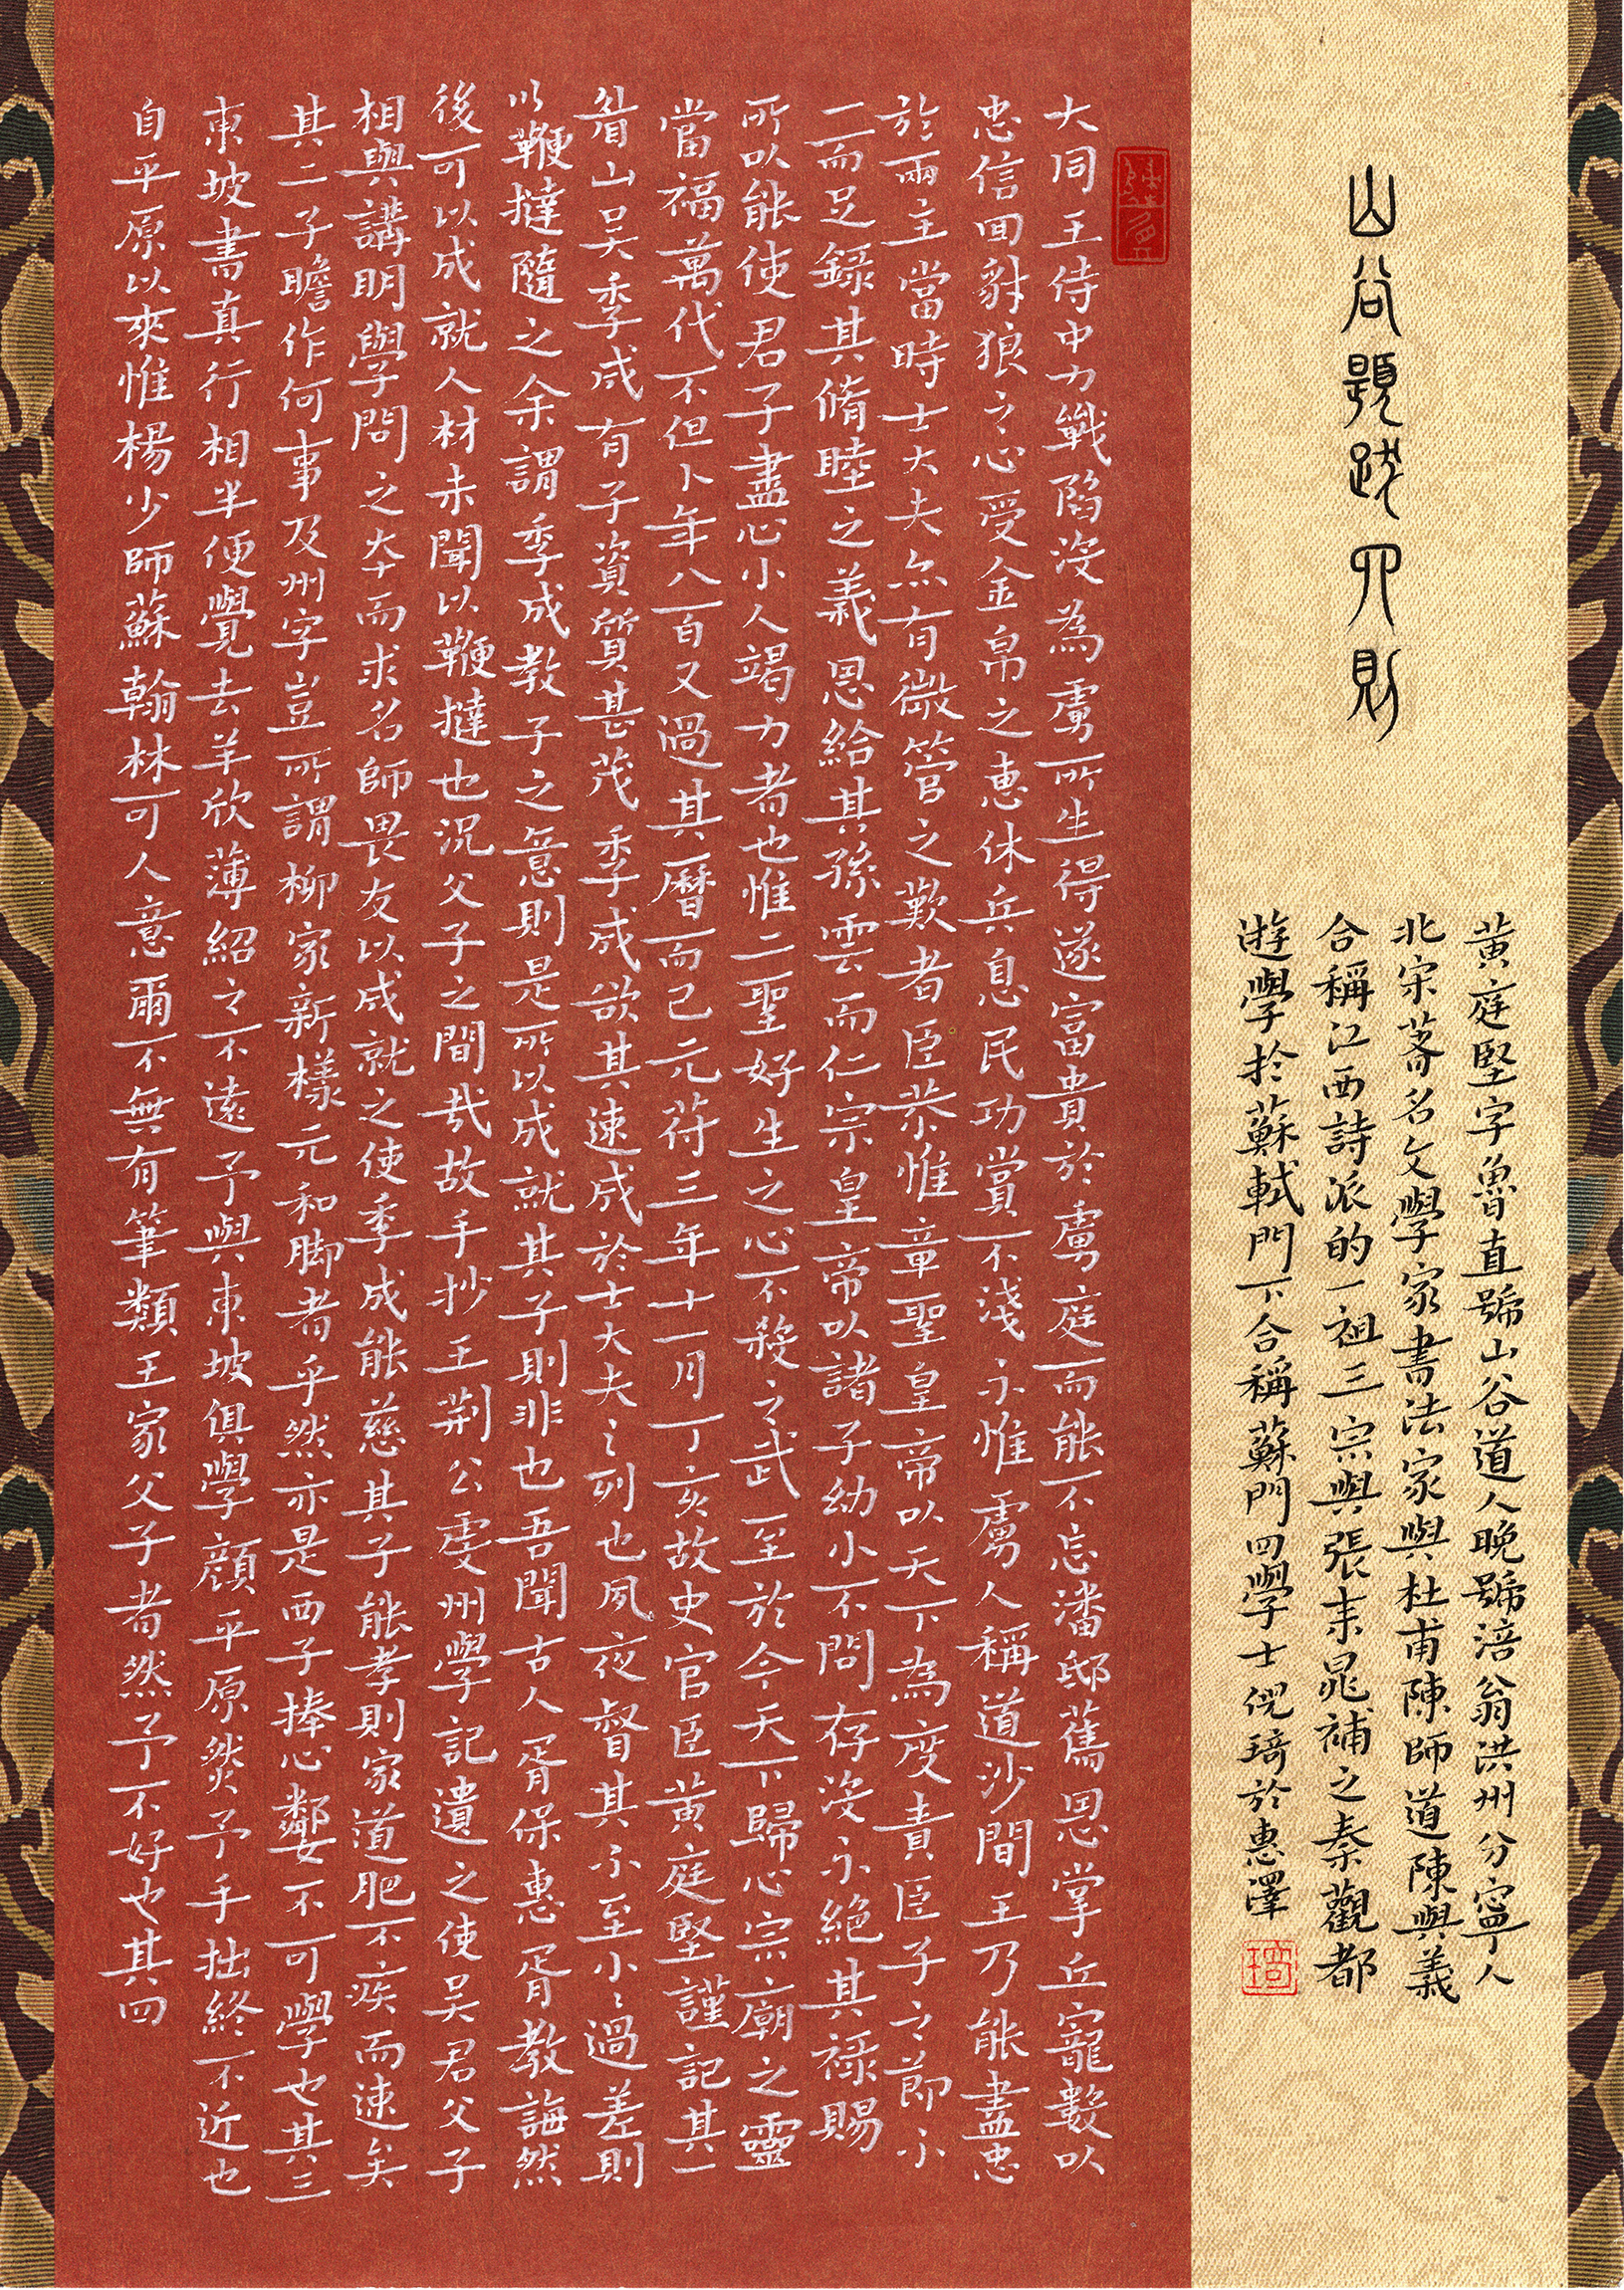 山谷題跋四則
黃庭堅字魯直號山谷道人晚號涪翁洪州分寧人
北宋著名文學家書法家與杜甫陳師道陳與義
合稱江西詩派的一祖三宗與張耒晁補之秦觀都
遊學於蘇軾門下合稱蘇門四學士倪琦於惠澤
大同王侍中力戰陷沒為虜所生得遂富貴於虜庭而能不忘潘邸舊恩掌丘寵數以
忠信回豺狼之心受金帛之惠休兵息民功賞不淺亦惟虜人稱道沙間王乃能盡忠
於兩主當時士大夫亦有微管之歎者臣恭惟章聖皇帝以天下為度責臣子之節亦
一而足錄其脩睦之義恩給其孫雲而仁宗皇帝以諸子幼小不問存沒亦絕其祿賜
所以能使君子盡心小人竭力者也惟二聖好生之心不殺之武至於今天下歸心宗廟之靈
當福萬代不但卜年八百又過其曆而已元符三年十一月丁亥故史官臣黃庭堅謹記其一
眉山吳季成有子資質甚茂季成欲其速成於士大夫之列也夙夜督其亦至小小過差則
以鞭撻隨之余謂季成教子之意則是所以成就其子則非也吾聞古人胥保惠胥教誨然
後可以成就人材未聞以鞭撻也況父子之間哉故手抄王荊公虔州學記遺之使吳君父子
相與講明學問之本而求名師畏友以成就之使季成能慈其子能孝則家道肥不疾而速矣
其二子瞻作何事及州字豈所謂柳家新樣元和脚者乎然亦是西子捧心鄰女不可學也其三
東坡書真行相半便覺去羊欣薄紹之不遠予與東坡俱學顏平原然予手拙終不近也
自平原以來惟楊少師蘇翰林可人意爾不無有筆類王家父子者然予不好也其四
琦